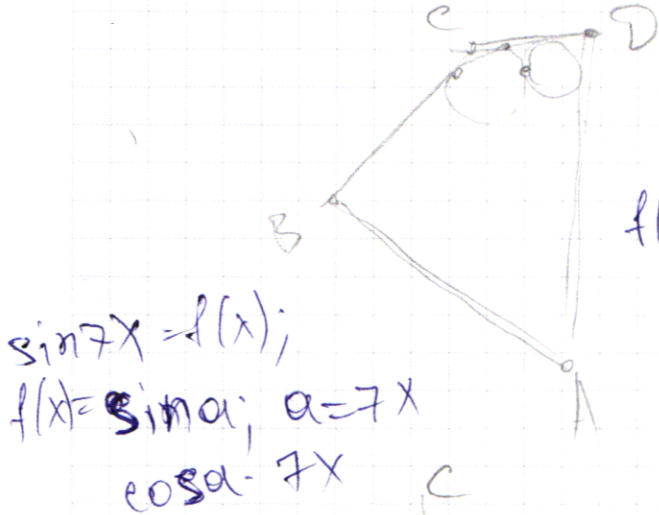 C D
B
f(
sin7x=f(x);
f(x)=sina; a=7x
A
cosa· 7x
C